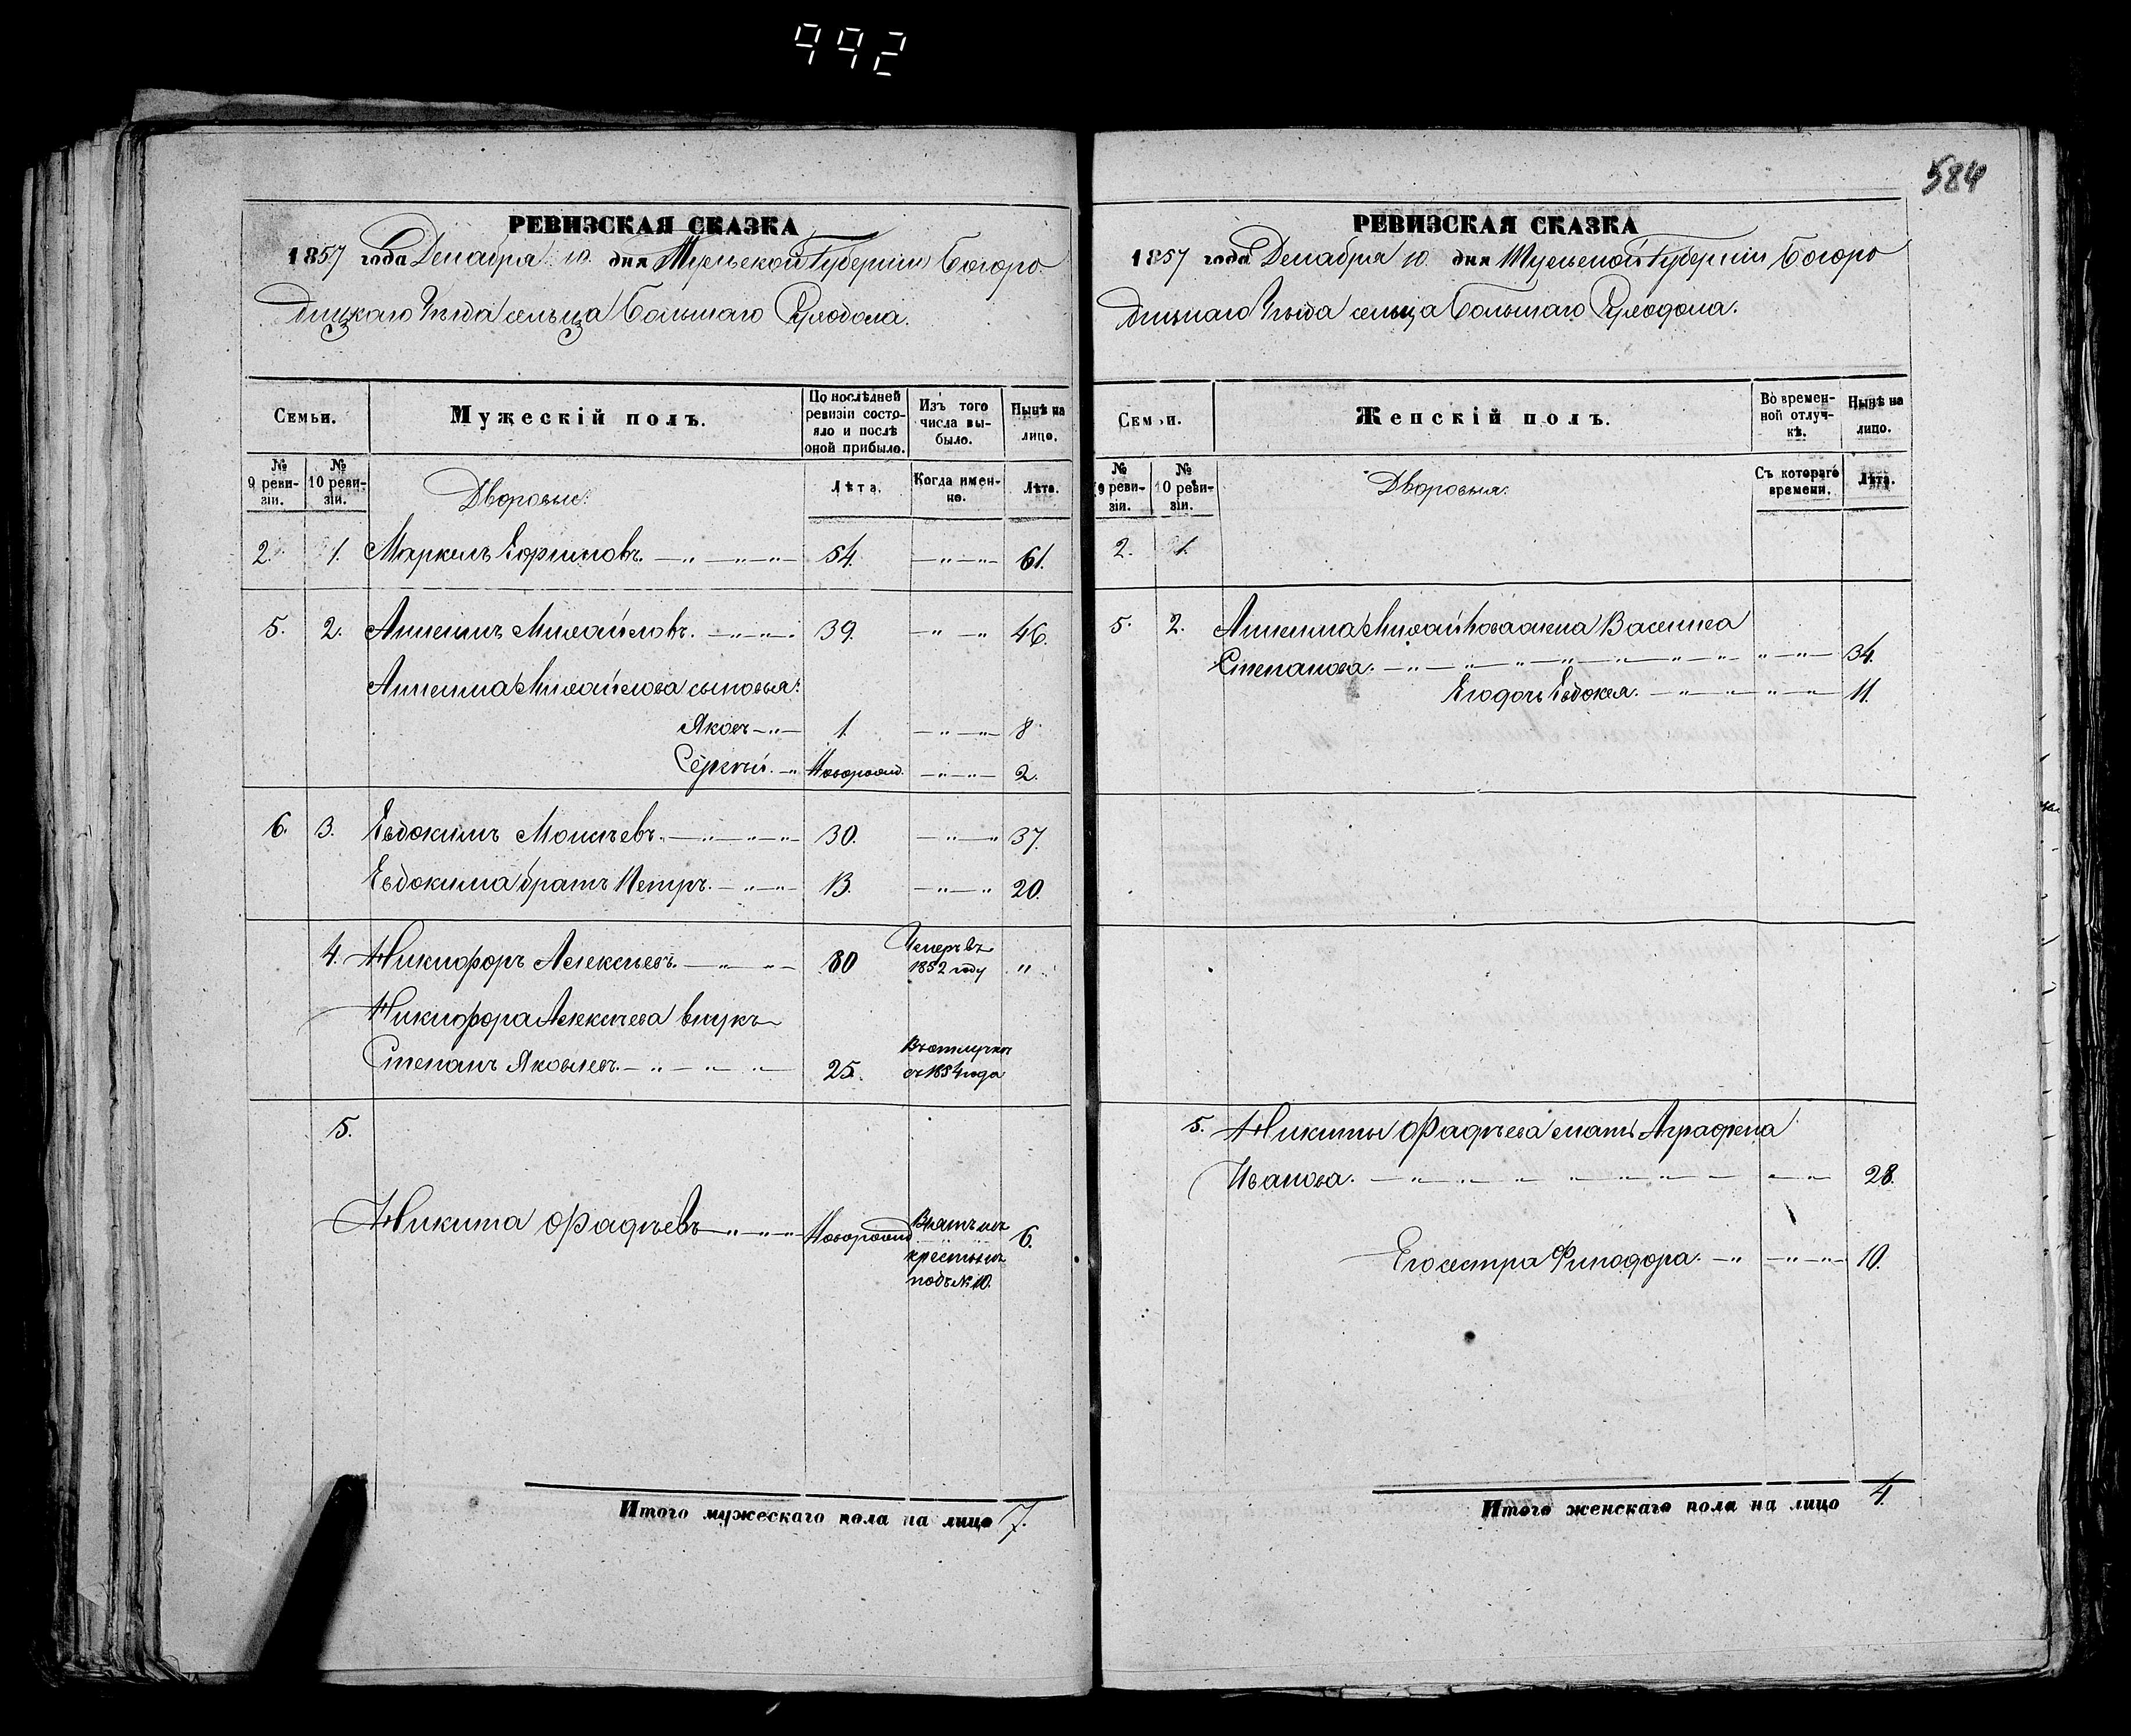 992
584
РЕВИЗСКАЯ СКАЗКА
1857 года Декабря 10. дня Тульской Губерніи Богоро
дицкаго Уѣзда сельца Большаго
Семьи.
Мужескій полъ.
По послѣдней ревизіи состояло и послѣ оной прибыло.
Изъ того числа выбыло.
Нынѣ на лицо.
№ 9 ревизіи.
№ 10 ревизіи.
Дворовые.
Лѣта.
Когда именно.
Лѣта.
2. 1. Маркелъ 54. 61.
5. 2. Михайловъ. 39. 46.
Михайлова сыновья:
Яковъ 1. 8
Сергѣй. Новорожд. 2.
6. 3. Евдокимъ Моисѣевъ. 30. 37.
Евдокима братъ Петръ. 13. 20.
4. Никифоръ Алексѣевъ. 80 Умеръ въ 1852 году "
Никифора Алексѣева внукъ
Степанъ Яковлевъ. 25. Въ отлучкѣ съ 1854 года
5.
Никита Фадѣевъ Новорожд Взятъ изъ крестьянъ подъ № 10. 6.
Итого мужескаго пола на лицо 7.
РЕВИЗСКАЯ СКАЗКА
1857 года Декабря 10. дня Тульской Губерніи Богоро
дицкаго Уѣзда сельца Большаго
Семьи.
Женскій полъ.
Во временной отлучкѣ.
Нынѣ на лицо.
№ 9 ревизіи.
№ 10 ревизіи.
Дворовыя.
Съ котораго времени.
Лѣта.
2. 1.
5. 2. Михайлова жена Василиса
Степанова. 34.
Его дочь Евдокея. 11.
5. Никиты Фадѣева мать Аграфена
Иванова. 28.
Его сестра Финодора. 10.
Итого женскаго пола на лицо 4.